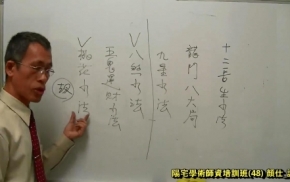 十二長生水法
龍門八大局
九星水法
∨八煞水法
五鬼運財水法
∨桃花水法
陽宅學術師資培訓班(48) 顏仕